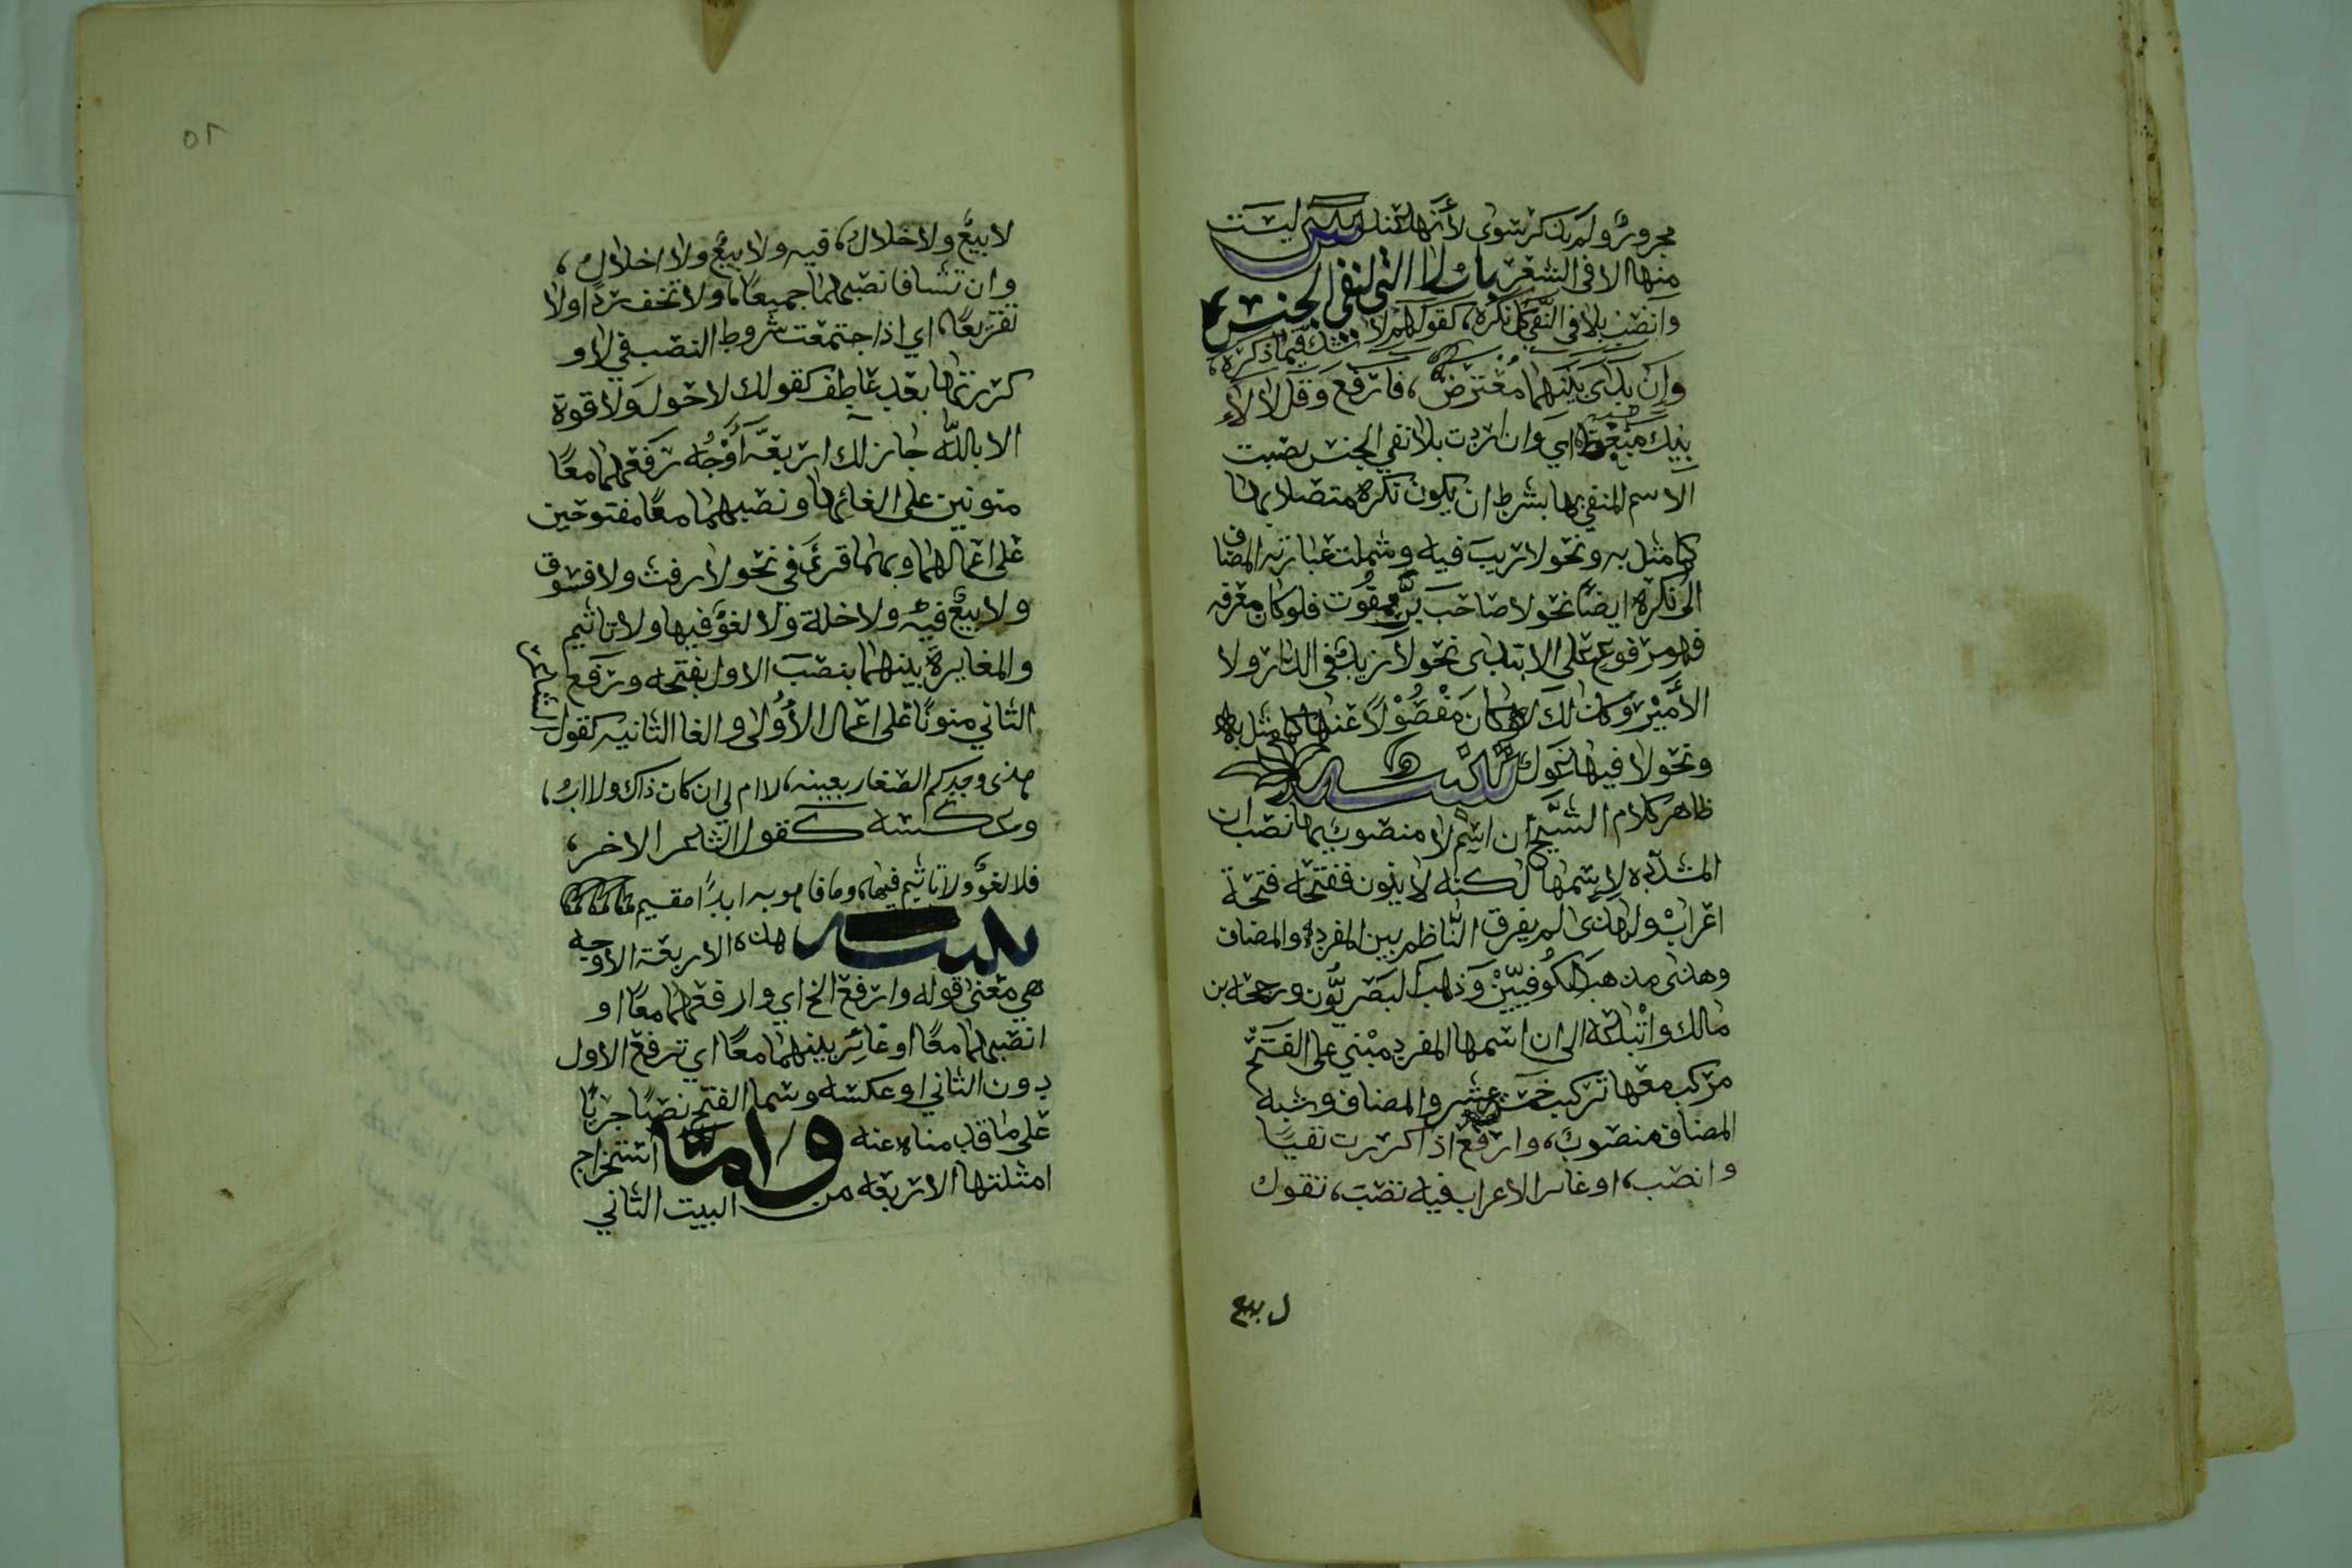 مجرور ولم يذكر سوى لأنها عند ليست
منها الا فى الشعر باب لا التى لنفى الجنس
وانصب بلا فى النفى كل نكره، كقولهم لا شك فيما ذكره،
وان بدا بينهما معترض، فارفع وقل لا لأ
بيك مبغض اي وان اردت بلا نفي الجنس نصبت
الاسم المنفي بها بشرط ان يكون نكره متصلا بها
كما مثل به ونحو لا ريب فيه وشملت عبارته المضاف
الى نكره ايضًا نحو لا صاحب برٍّ ممقوت فلو كان معرفه
فهو مرفوع على الابتدى نحو لا زيدٌ فى الدار ولا
الأمير وكذلك لو كان مفصولاً عنها كما مثل به
ونحو لا فيها غول تنبيه
ظاهر كلام الشيخ ان اسم لا منصوب بها نصب ان
المشدده لاسمها لكنه لا ينون ففتحه فتحة
اعراب ولهذى لم يفرق الناظم بين المفرد والمضاف
وهذى مذهب الكوفيين وذهب البصريون ورجحه بن
مالك واتباعه الى ان اسمها المفرد مبني على الفتح
مركب معها تركيب خمسة عشر والمضاف وشبه
المضاف منصوب، وارفع اذا كررت نفيًا
وانصب، او غاير الاعراب فيه تصب، تقول
ل بيع
٥٢
لا بيعٌ ولا خلالٌ، فيه ولا بيعٌ ولا اخلالُ،
وان تشا فانصبهما جميعًا، ولا تخف ردًا ولا
تقريعًا، اي اذا اجتمعت شروط النصب في لا و
كررتها بعد عاطف كقولك لا حول ولا قوة
الا بالله جاز لك اربعة أوجه رفعهما معًا
منونين على الغائها ونصبهما معًا مفتوحين
على اعمالهما وبهما قرئ في نحو لا رفث ولا فسوق
ولا بيعٌ فيه ولا خلة ولا لغوٌ فيها ولا تاثيم
والمغايرة بينهما بنصب الاول بفتحه ورفع
الثاني منونًا على اعمال الأولى والغا الثانيه كقول
الشاعر
هذى وجدكم الصغار بعينه، لا ام لي ان كان ذاك ولا اب،
وعكسه كقول الشاعر الاخر،
فلا لغوٌ ولا تاثيم فيها، وما فاهو به ابدًا مقيم
تنبيه هذه الاربعة الاوجه
هي معنى قوله وارفع الخ اي وارفعهما معًا او
انصبهما معًا او غائر بينهما معًا اي ترفع الاول
دون الثاني او عكسه وسما الفتح نصبًا جريًا
على ما قدمناه عنه واما استخراج
امثلتها الاربعه من البيت الثاني